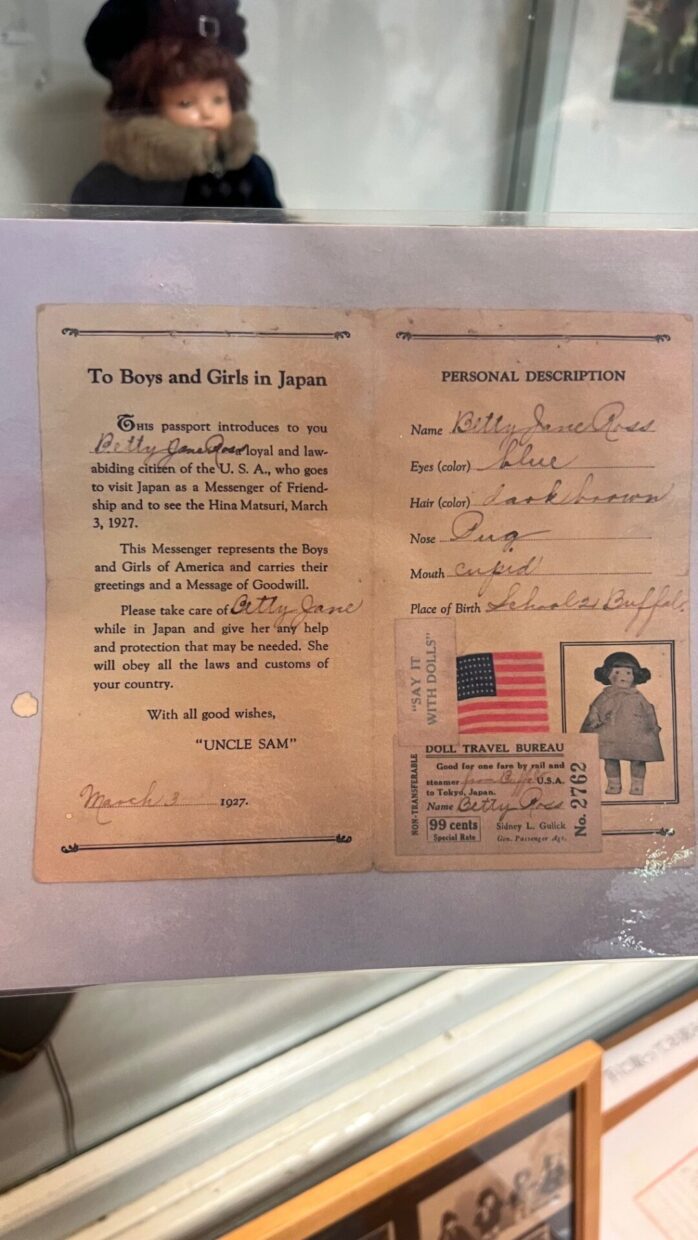 To Boys and Girls in Japan
THIS passport introduces to you
Betty Jane Ross loyal and law-
abiding citizen of the U. S. A., who goes
to visit Japan as a Messenger of Friend-
ship and to see the Hina Matsuri, March
3, 1927.
This Messenger represents the Boys
and Girls of America and carries their
greetings and a Message of Goodwill.
Please take care of Betty Jane
while in Japan and give her any help
and protection that may be needed. She
will obey all the laws and customs of
your country.
With all good wishes,
"UNCLE SAM"
March 3 1927.
PERSONAL DESCRIPTION
Name Betty Jane Ross
Eyes (color) blue
Hair (color) dark brown
Nose Pug
Mouth cupid
Place of Birth School 21 Buffal.
"SAY IT
WITH DOLLS"
DOLL TRAVEL BUREAU
NON-TRANSFERABLE
Good for one fare by rail and
steamer from Buffalo U.S.A.
to Tokyo, Japan.
Name Betty Ross
99 cents
Special Rate
Sidney L. Gulick
Gen. Passenger Agt.
No. 2762